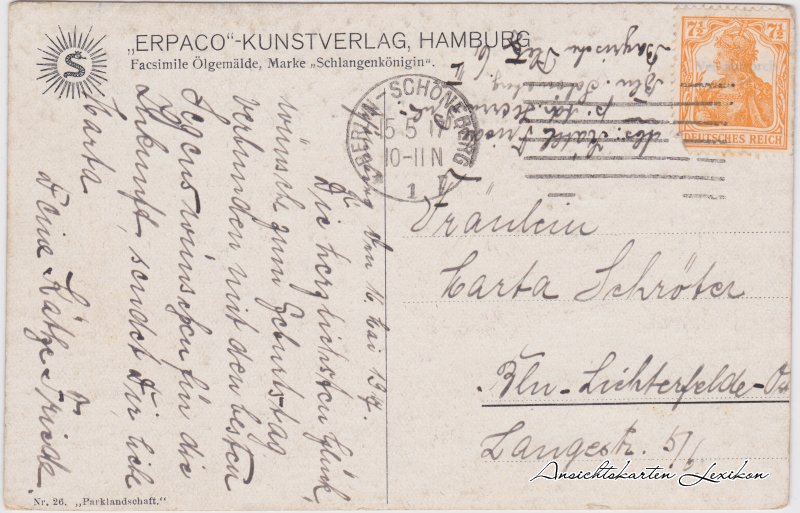 „ERPACO“-KUNSTVERLAG, HAMBURG
Facsimile Ölgemälde, Marke „Schlangenkönigin“.
S
7½ 7½
DEUTSCHES REICH
BERLIN-SCHÖNEBERG
15.5.17
10-11N
1
Abs. Käthe
Bln.
Bayrische Platz
den 16. Mai 1917.
Die herzlichsten Glück-
wünsche zum Geburtstag
verbunden mit den besten
Segenswünschen für die
Zukunft, sendet Dir lieb
Marta
Deine Käthe
Fräulein
Marta Schröter
Bln-Lichterfelde-Os
Langestr. 5/6
Nr. 26. „Parklandschaft.“
Ansichtskarten Lexikon